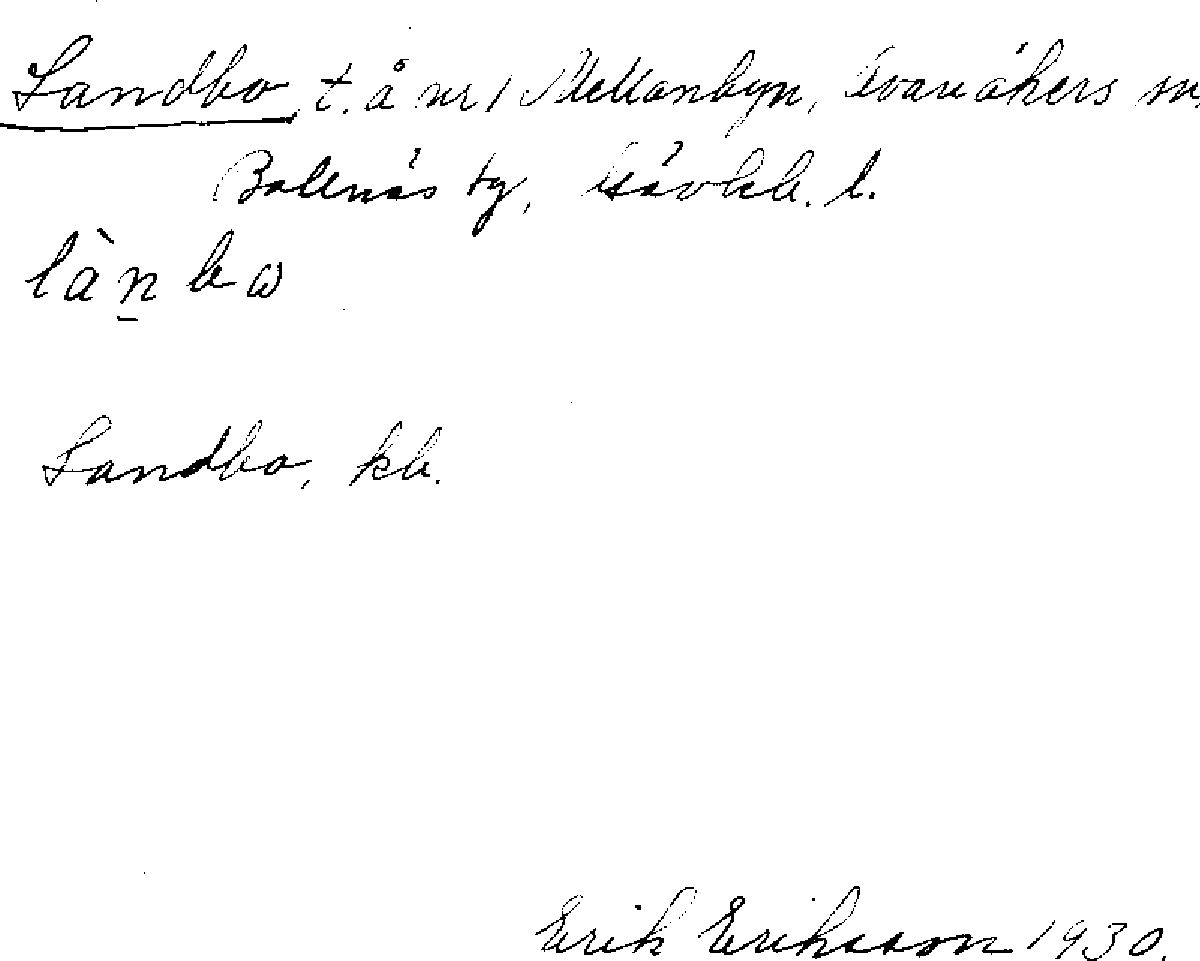 Landbo t. å nr 1 Mellanbyn, Svanåkers sn.
Bollnäs tg, Gävleb. l.
làn̲bω
Landbo, kb.
Erik Eriksson 1930.